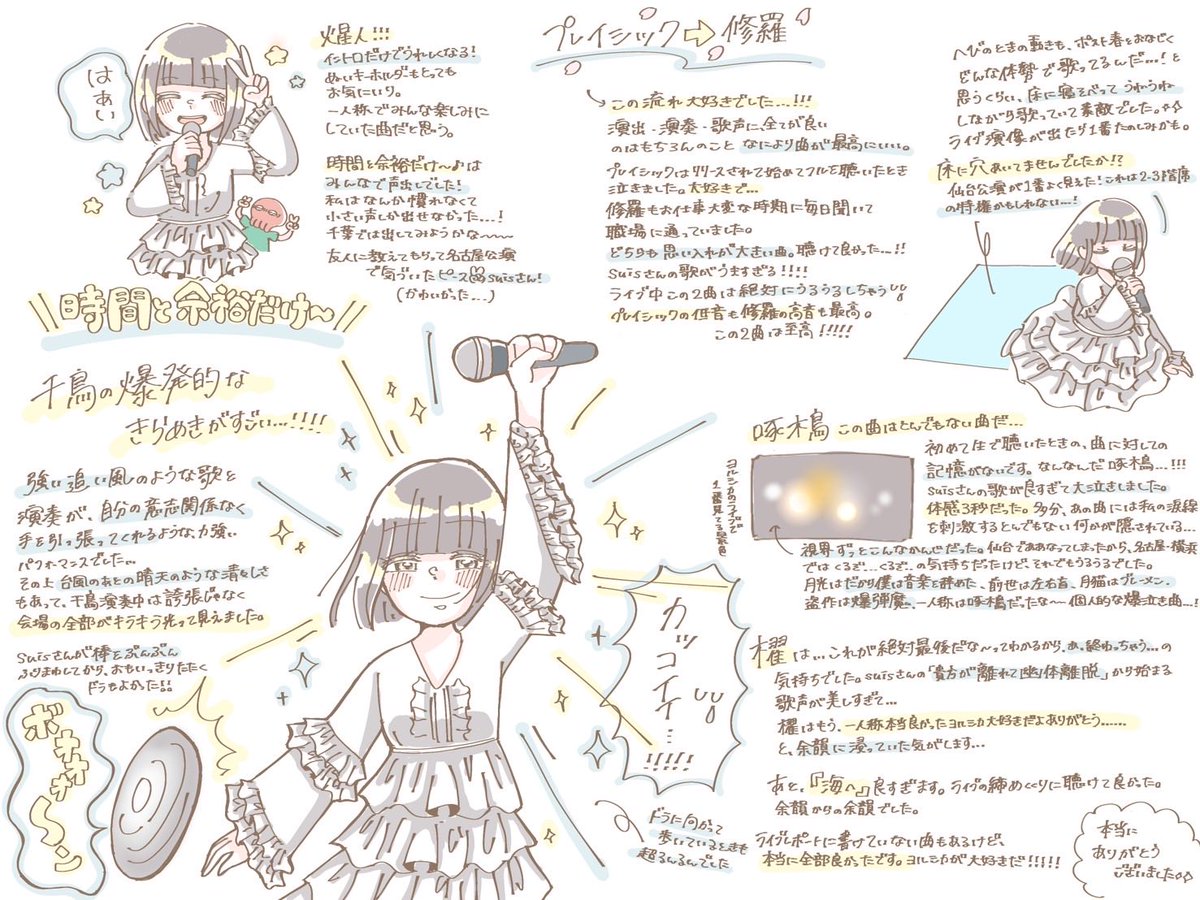 はあい
火星人!!!
イントロだけでうれしくなる!
ぬいキーホルダもとっても
お気にいり。
一人称でみんな楽しみに
していた曲だと思う。
時間と余裕だけ〜♪は
みんなで声出しでした!
私はなんか慣れなくて
小さい声しか出せなかった...!
千葉では出してみようかな〜〜〜
友人に教えてもらって名古屋公演
で気づいたピースsuisさん!
(かわいかった...)
\\時間と余裕だけ〜//
プレイシック⇨修羅
この流れ大好きでした...!!!
演出・演奏・歌声に、全てが良い
のはもちろんのこと なにより曲が最高にいい。
プレイシックはリリースされて始めてフルを聴いたとき
泣きました。大好きで...
修羅もお仕事大変な時期に毎日聞いて
職場に通っていました。
どちらも思い入れが大きい曲。聴けて良かった...!!
suisさんの歌がうますぎる!!!!
ライブ中この2曲は絶対にうるうるしちゃう
プレイシックの低音も修羅の高音も最高。
この2曲は至高!!!!!
へびのときの動きも、ポスト春とおなじく
どんな体勢で歌ってるんだ...!と
思うくらい、床に寝そべって うねうね
しながら歌っていて素敵でした。
ライブ演像が出たら1番たのしみかも。
床に穴あいてませんでしたか!?
仙台公演が1番よく見えた!これは2-3階席
の特権かもしれない...!
千鳥の爆発的な
きらめきがすごい...!!!!
強い追い風のような歌と
演奏が、自分の意志関係なく
手を引っ張ってくれるような、力強い
パフォーマンスでした...
その上 台風のあとの晴天のような清々しさ
もあって、千鳥演奏中は誇張じゃなく
会場の全部がキラキラ光って見えました。
suisさんが棒をぶんぶん
ふりまわしてから、おもいっきりたたく
ドラもよかった!!
ボオオオ〜ン
カッコイイ...!!!!!
ドラに向かって
歩いているときも
超るんるんでした
啄木鳥 この曲はとんでもない曲だ...
ヨルシカのライブで
1番見てる景色
初めて生で聴いたときの、曲に対しての
記憶がないです。なんなんだ啄木鳥...!!!
suisさんの歌が良すぎて大泣きしました。
体感3秒だった。多分、あの曲には私の涙線
を刺激するとんでもない何かが隠されている...
視界ずっとこんなかんじだった。仙台でああなってしまったから、名古屋・横浜
ではくるぞ...くるぞ..の気持ちだったけど、それでもうるうるでした。
月光はだから僕は音楽を辞めた、前世は左右盲、月猫はブレーメン、
盗作は爆弾魔、一人称は啄木鳥だったな〜個人的な爆泣き曲...!
櫂は...これが絶対最後だな〜ってわかるから、あ、終わっちゃう...の
気持ちでした。suisさんの「貴方が離れて幽体離脱」から始まる
歌声が美しすぎて...
櫂はもう、一人称本当良かったヨルシカ大好きだよありがとう......
と、余韻に浸っていた気がします...
あと、『海へ』良すぎます。ライヴの締めくくりに聴けて良かった。
余韻からの余韻でした。
ライブレポートに書けていない曲もあるけど、
本当に全部良かったです。ヨルシカが大好きだ!!!!!
本当に
ありがとう
ございました